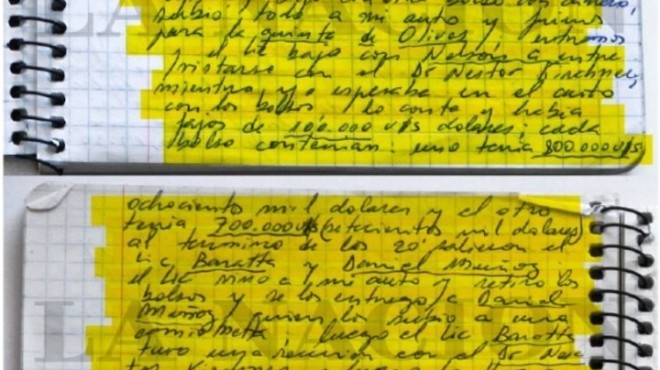 bolso con dinero,
subio todo a mi auto y fuimos
para la quinta de Olivos; entramos
y el lic bajo con Nelson a entre
vistarse con el Dr Nestor Kirchner,
mientras yo esperaba en el auto
con los bolsos lo conte y habia
fajos de 100.000 u$s dolares; cada
bolso contenian: uno tenia 800.000 u$s
ochocientos mil dolares y el otro
tenia 700.000 u$s (setecientos mil dolares)
al termino de los 20' salieron el
lic Baratta y Daniel Muñoz
el lic vino a mi auto y retiro los
bolsos y se los entrego a Daniel
Muñoz, quien los subio a una
camioneta, luego el lic Baratta
tuvo una reunion con el Dr Nes
LA NACION